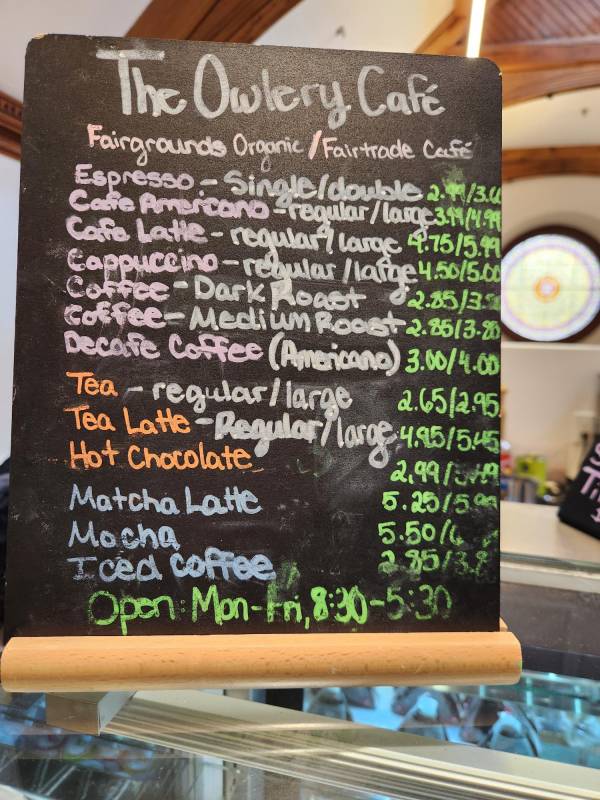 The Owlery Café
Fairgrounds Organic / Fairtrade Café
Espresso - Single/double 2.99/
Cafe Amercano - regular/large 3.99/4.99
Cafe Latte - regular/large 4.75/5.99
Cappuccino - regular/large 4.50/5.00
Coffee - Dark Roast 2.85/
Coffee - Medium Roast 2.85/3.85
Decafe Coffee (Americano) 3.00/4.00
Tea - regular/large 2.65/2.95
Tea Latte - Regular/large 4.95/5.45
Hot Chocolate 2.99/
Matcha Latte 5.25/
Mocha 5.50/
Iced coffee 2.85/
Open: Mon-Fri, 8:30-5:30